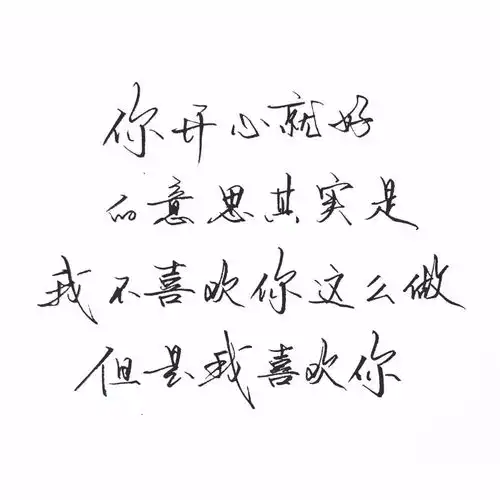 你开心就好
的意思其实是
我不喜欢你这么做
但是我喜欢你